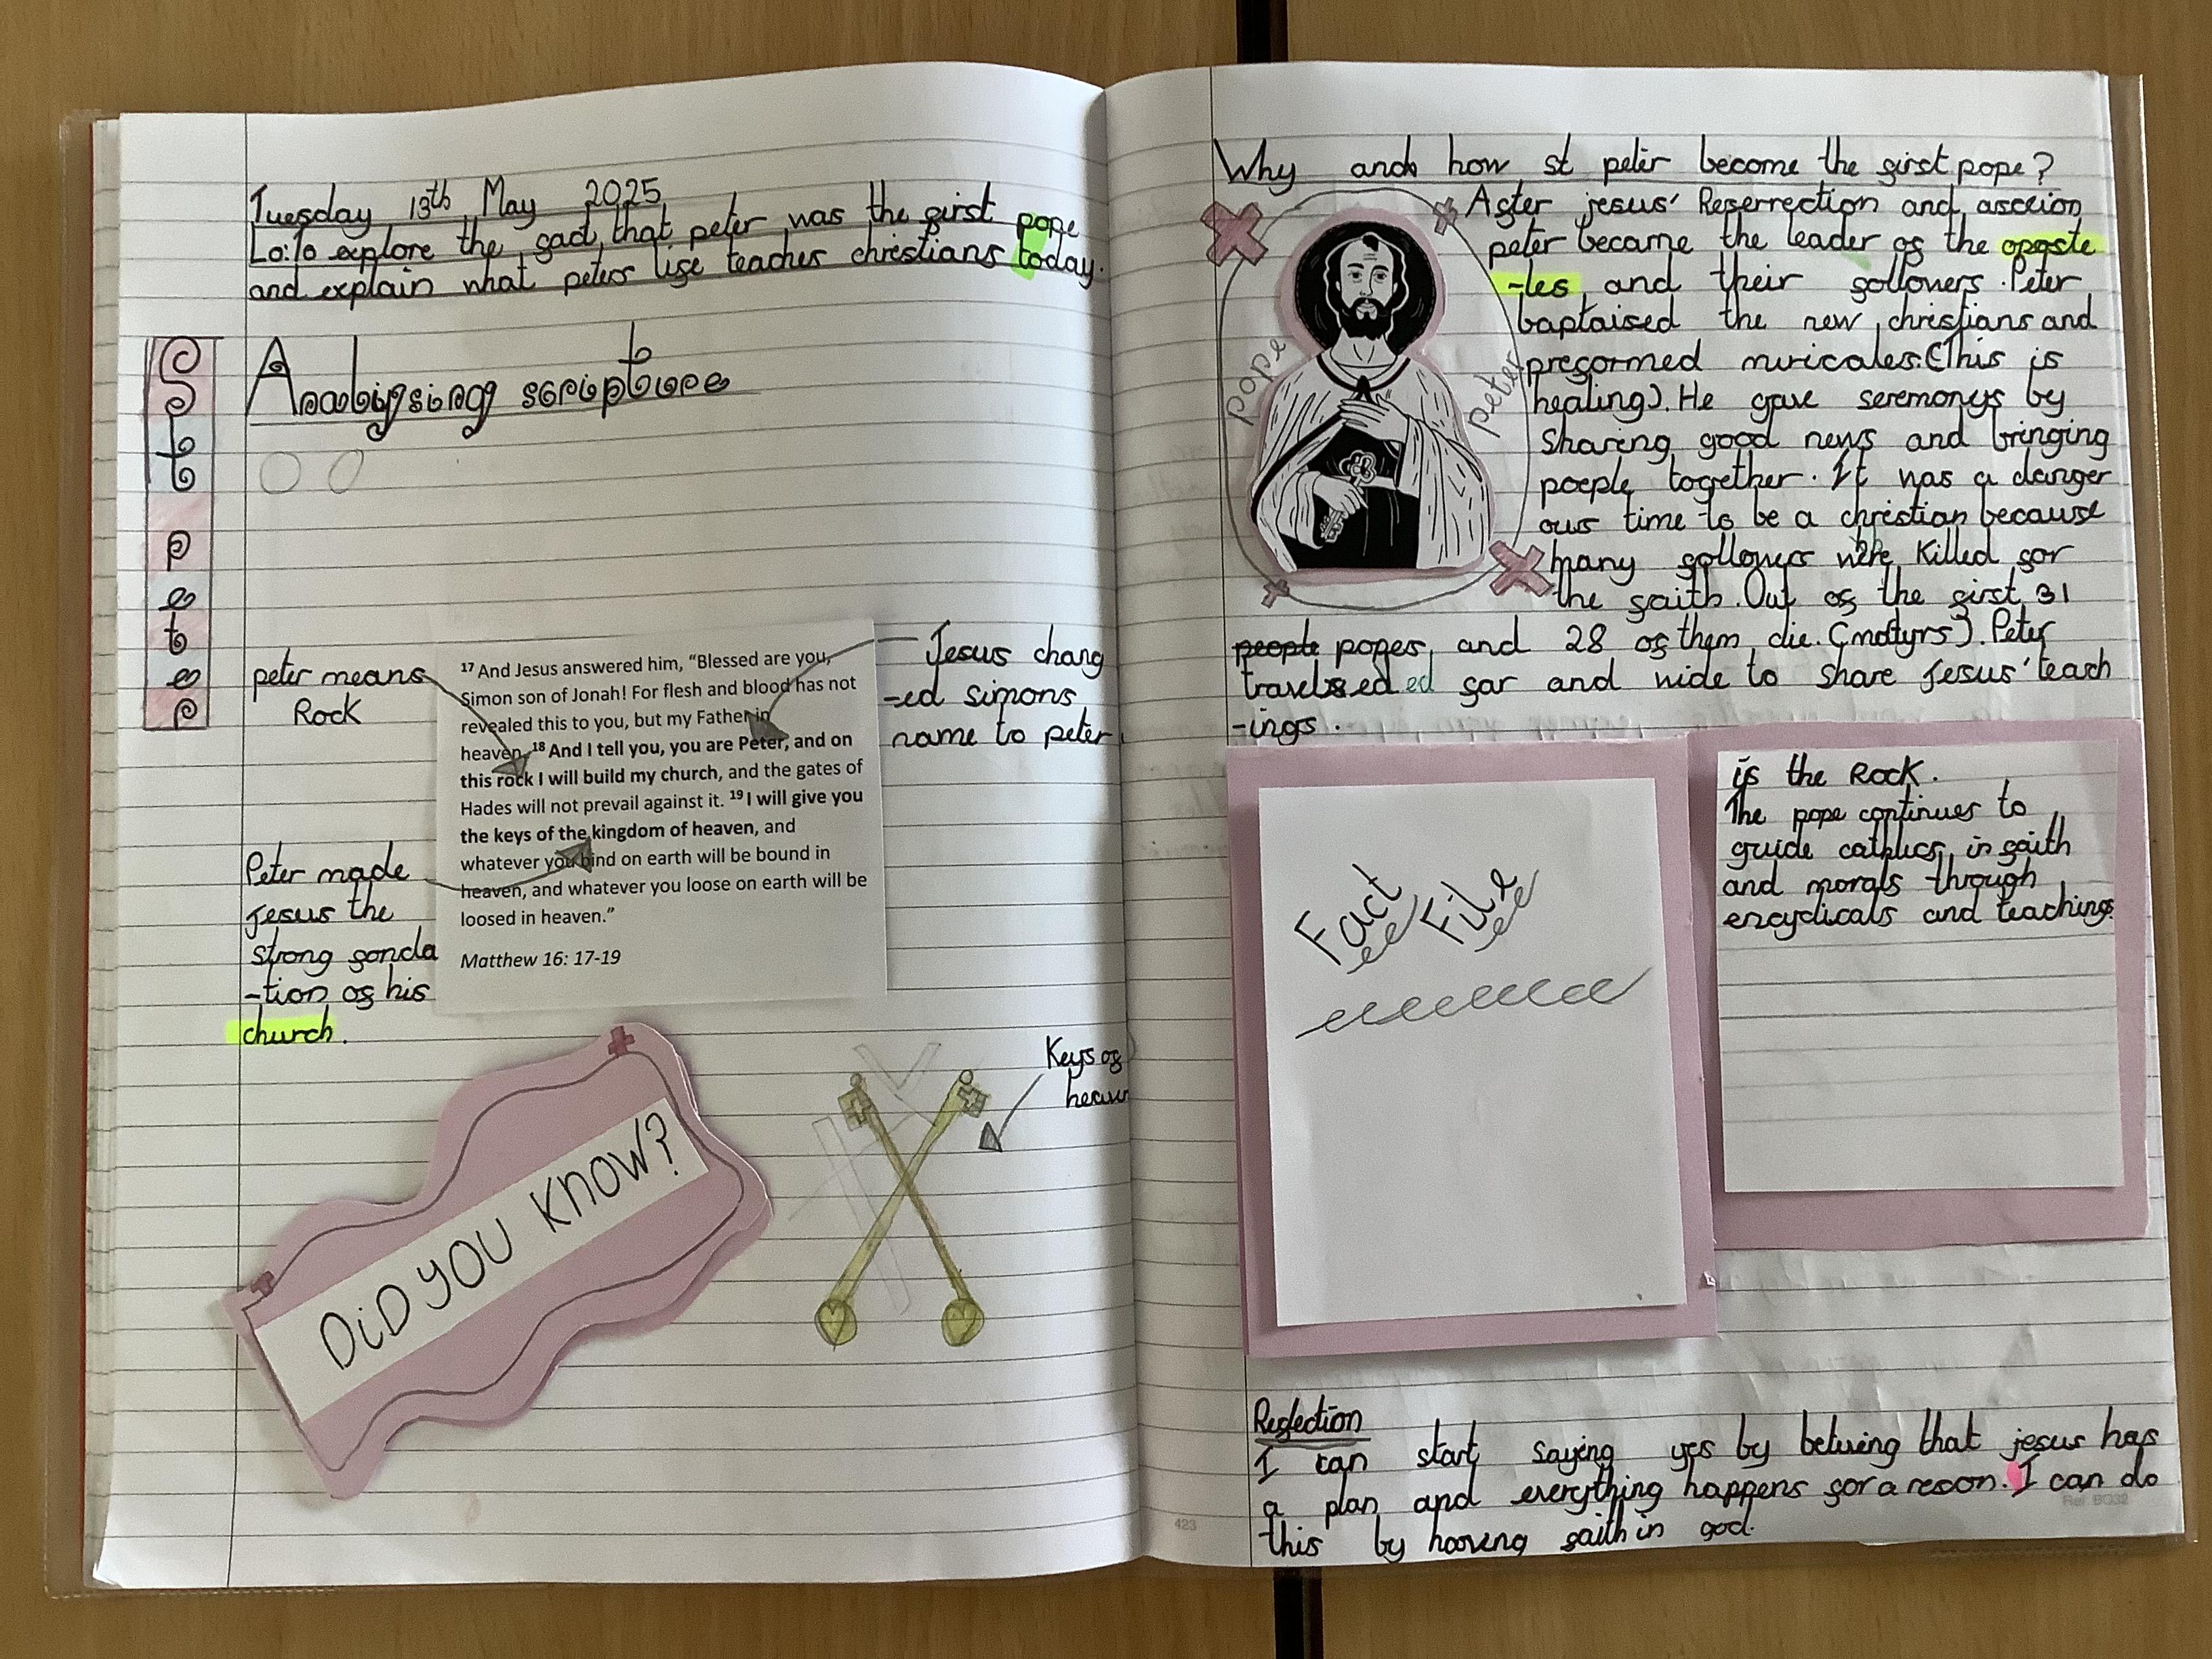 Tuesday 13th May 2025
Lo:To explore the fact that peter was the first pope
and explain what peters life teaches chrestians today.
St peter
Analysing scripture
peter means
Rock
Jesus chang
-ed simons
name to peter
17 And Jesus answered him, “Blessed are you,
Simon son of Jonah! For flesh and blood has not
revealed this to you, but my Father in
heaven. 18 And I tell you, you are Peter, and on
this rock I will build my church, and the gates of
Hades will not prevail against it. 19 I will give you
the keys of the kingdom of heaven, and
whatever you bind on earth will be bound in
heaven, and whatever you loose on earth will be
loosed in heaven.”
Matthew 16: 17-19
Peter made
Jesus the
strong fonda
-tion of his
church.
DiD YOU KNOW?
Keys of
heaven
423
Why and how st peter become the first pope?
pope
peter
After jesus' Reserrection and asceion
peter became the leader of the opaste
-les and their followers. Peter
baptaised the new chrestians and
preformed muricales. (This is
healing). He gave seremonys by
Sharing good news and bringing
poeple together. It was a danger
ous time to be a chrestian because
many followers were killed for
the faith. Out of the first 31
people popes, and 28 of them die. (matyrs). Peter
travelsed ed far and wide to share Jesus' teach
-ings.
Fact File
is the Rock.
The pope continues to
guide cathlics in faith
and morals through
encyclicals and teachings.
Reflection
I can start saying yes by beliving that jesus has
a plan and everything happens for a reson. I can do
this by having faith in god.
Ref: BG32